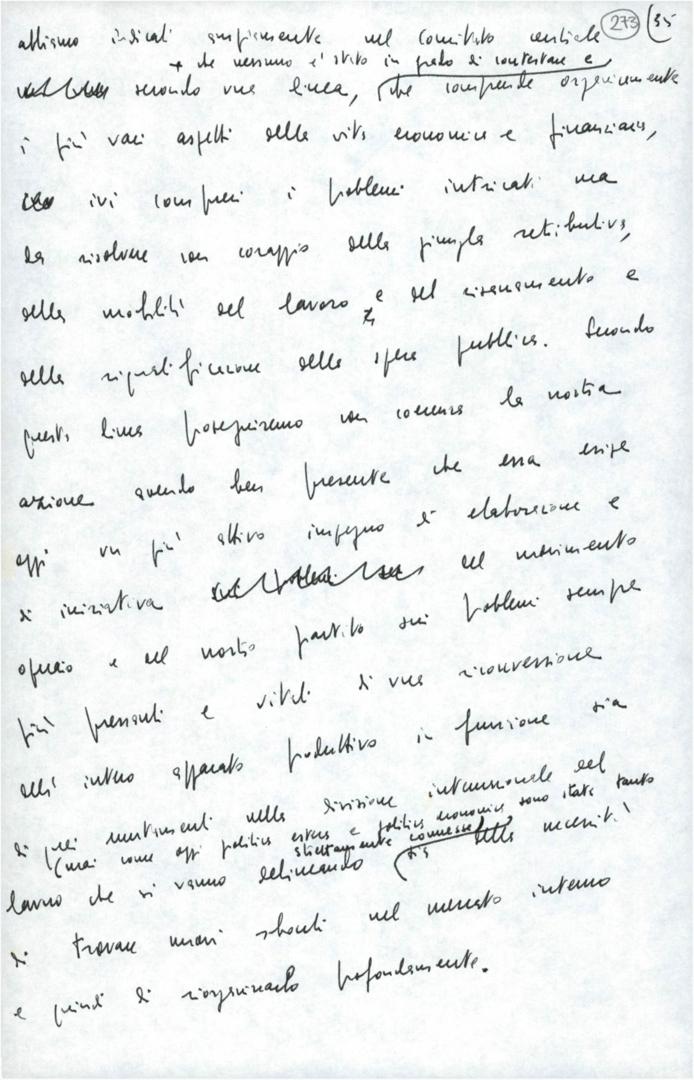 273 35
abbiamo indicati ampiamente nel Comitato centrale
+ che nessuno è stato in grado di contestare e
secondo una linea, che comprende organicamente
i più vari aspetti della vita economica e finanziaria,
ivi compresi i problemi intricati ma
da risolvere con coraggio della giungla retributiva,
della mobilità del lavoro e del risanamento e
della riqualificazione della spesa pubblica. Secondo
questa linea proseguiremo con coerenza la nostra
azione avendo ben presente che essa esige
oggi un più attivo impegno di elaborazione e
di iniziativa del movimento
operaio e del nostro partito sui problemi sempre
più pressanti e vitali di una riconversione
dell'intero apparato produttivo in funzione sia
di quei mutamenti nella divisione internazionale del
(mai come oggi politica estera e politica economica sono state tanto
strettamente connesse)
lavoro che si vanno delineando sia della necessità
di trovare nuovi sbocchi nel mercato interno
e quindi di riorganizzarlo profondamente.